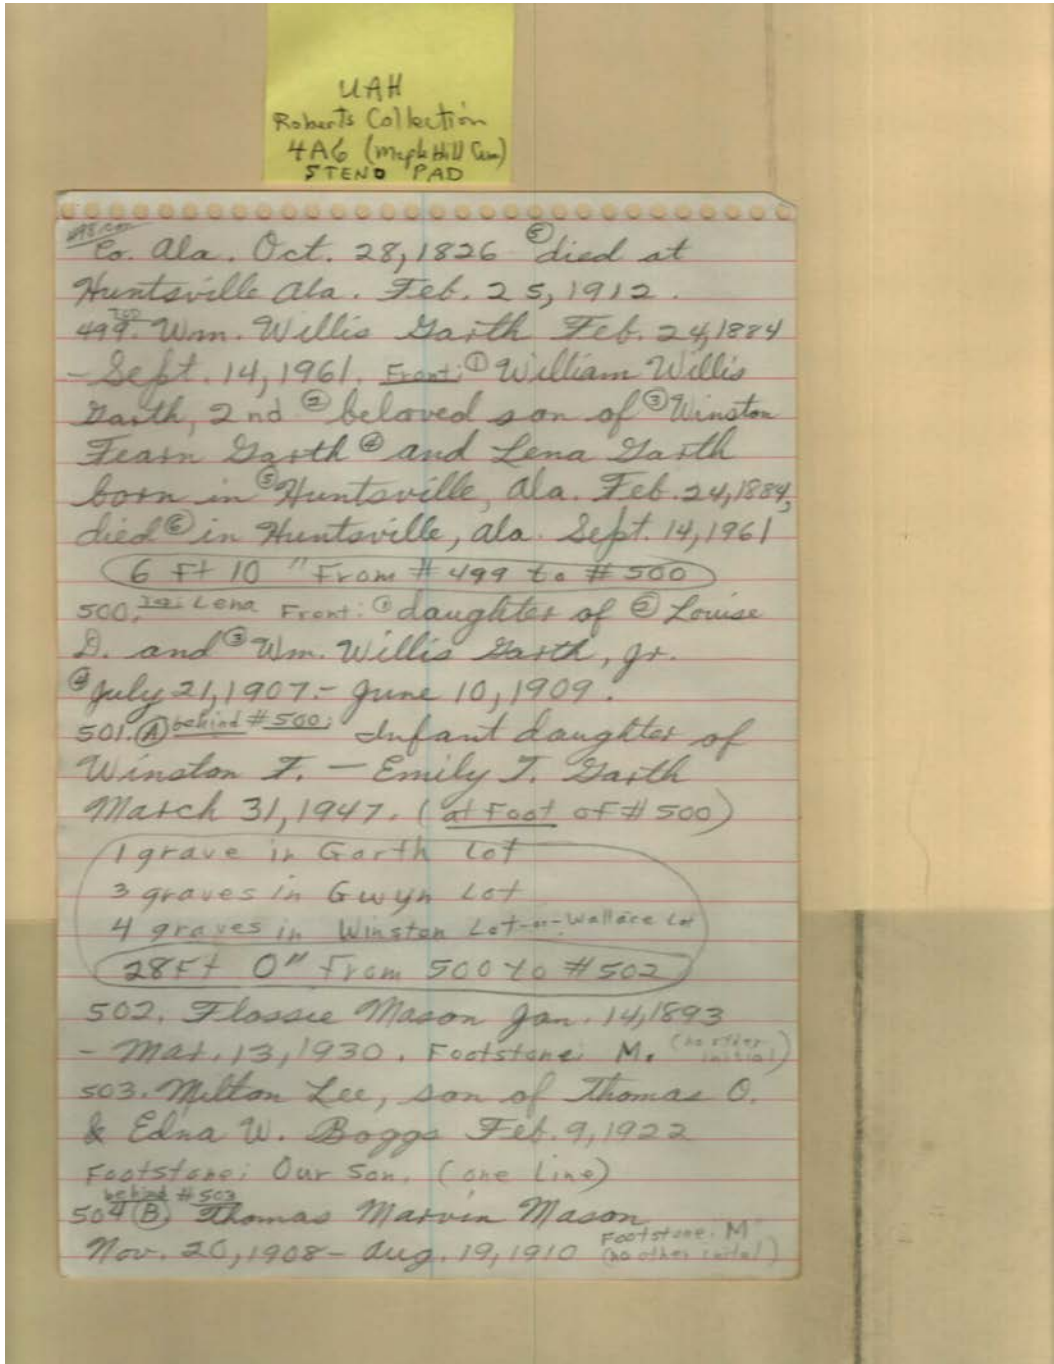 UAH
Roberts Collection
4A6 (Maple Hill Cem)
STENO PAD
498. con
Co. Ala. Oct. 28, 1826 ⑤ died at
Huntsville Ala. Feb. 25, 1912.
499. Top: Wm. Willis Garth Feb. 24, 1884
- Sept. 14, 1961. Front: ① William Willis
Garth, 2nd ② beloved son of ③ Winston
Fearn Garth ④ and Lena Garth
born in ⑤ Huntsville, Ala. Feb. 24, 1884,
died ⑥ in Huntsville, Ala. Sept. 14, 1961
6 Ft 10 " From # 499 to # 500
500. Top: Lena Front: ① daughter of ② Louise
D. and ③ Wm. Willis Garth, Jr.
④ July 21, 1907. - June 10, 1909.
501. Ⓐ behind # 500: Infant daughter of
Winston F. — Emily T. Garth
March 31, 1947. (at Foot of # 500)
1 grave in Garth Lot
3 graves in Gwyn Lot
4 graves in Winston Lot -or- Wallace Lot
28 Ft 0" From 500 to # 502
502. Flossie Mason Jan. 14, 1893
- Mar. 13, 1930. Footstone: M. (no other initial)
503. Milton Lee, son of Thomas O.
& Edna W. Boggs Feb. 9, 1922
Footstone: Our Son. (one line)
504 Ⓑ behind # 503 Thomas Marvin Mason
Nov. 20, 1908 - Aug. 19, 1910 Footstone. M (no other initial)